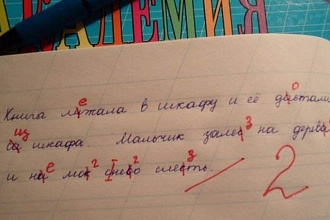 АКАДЕМИЯ
Книга лежала в шкафу и её достали
из шкафа. Мальчик залез на дерево
и не мог с него слезть.
2